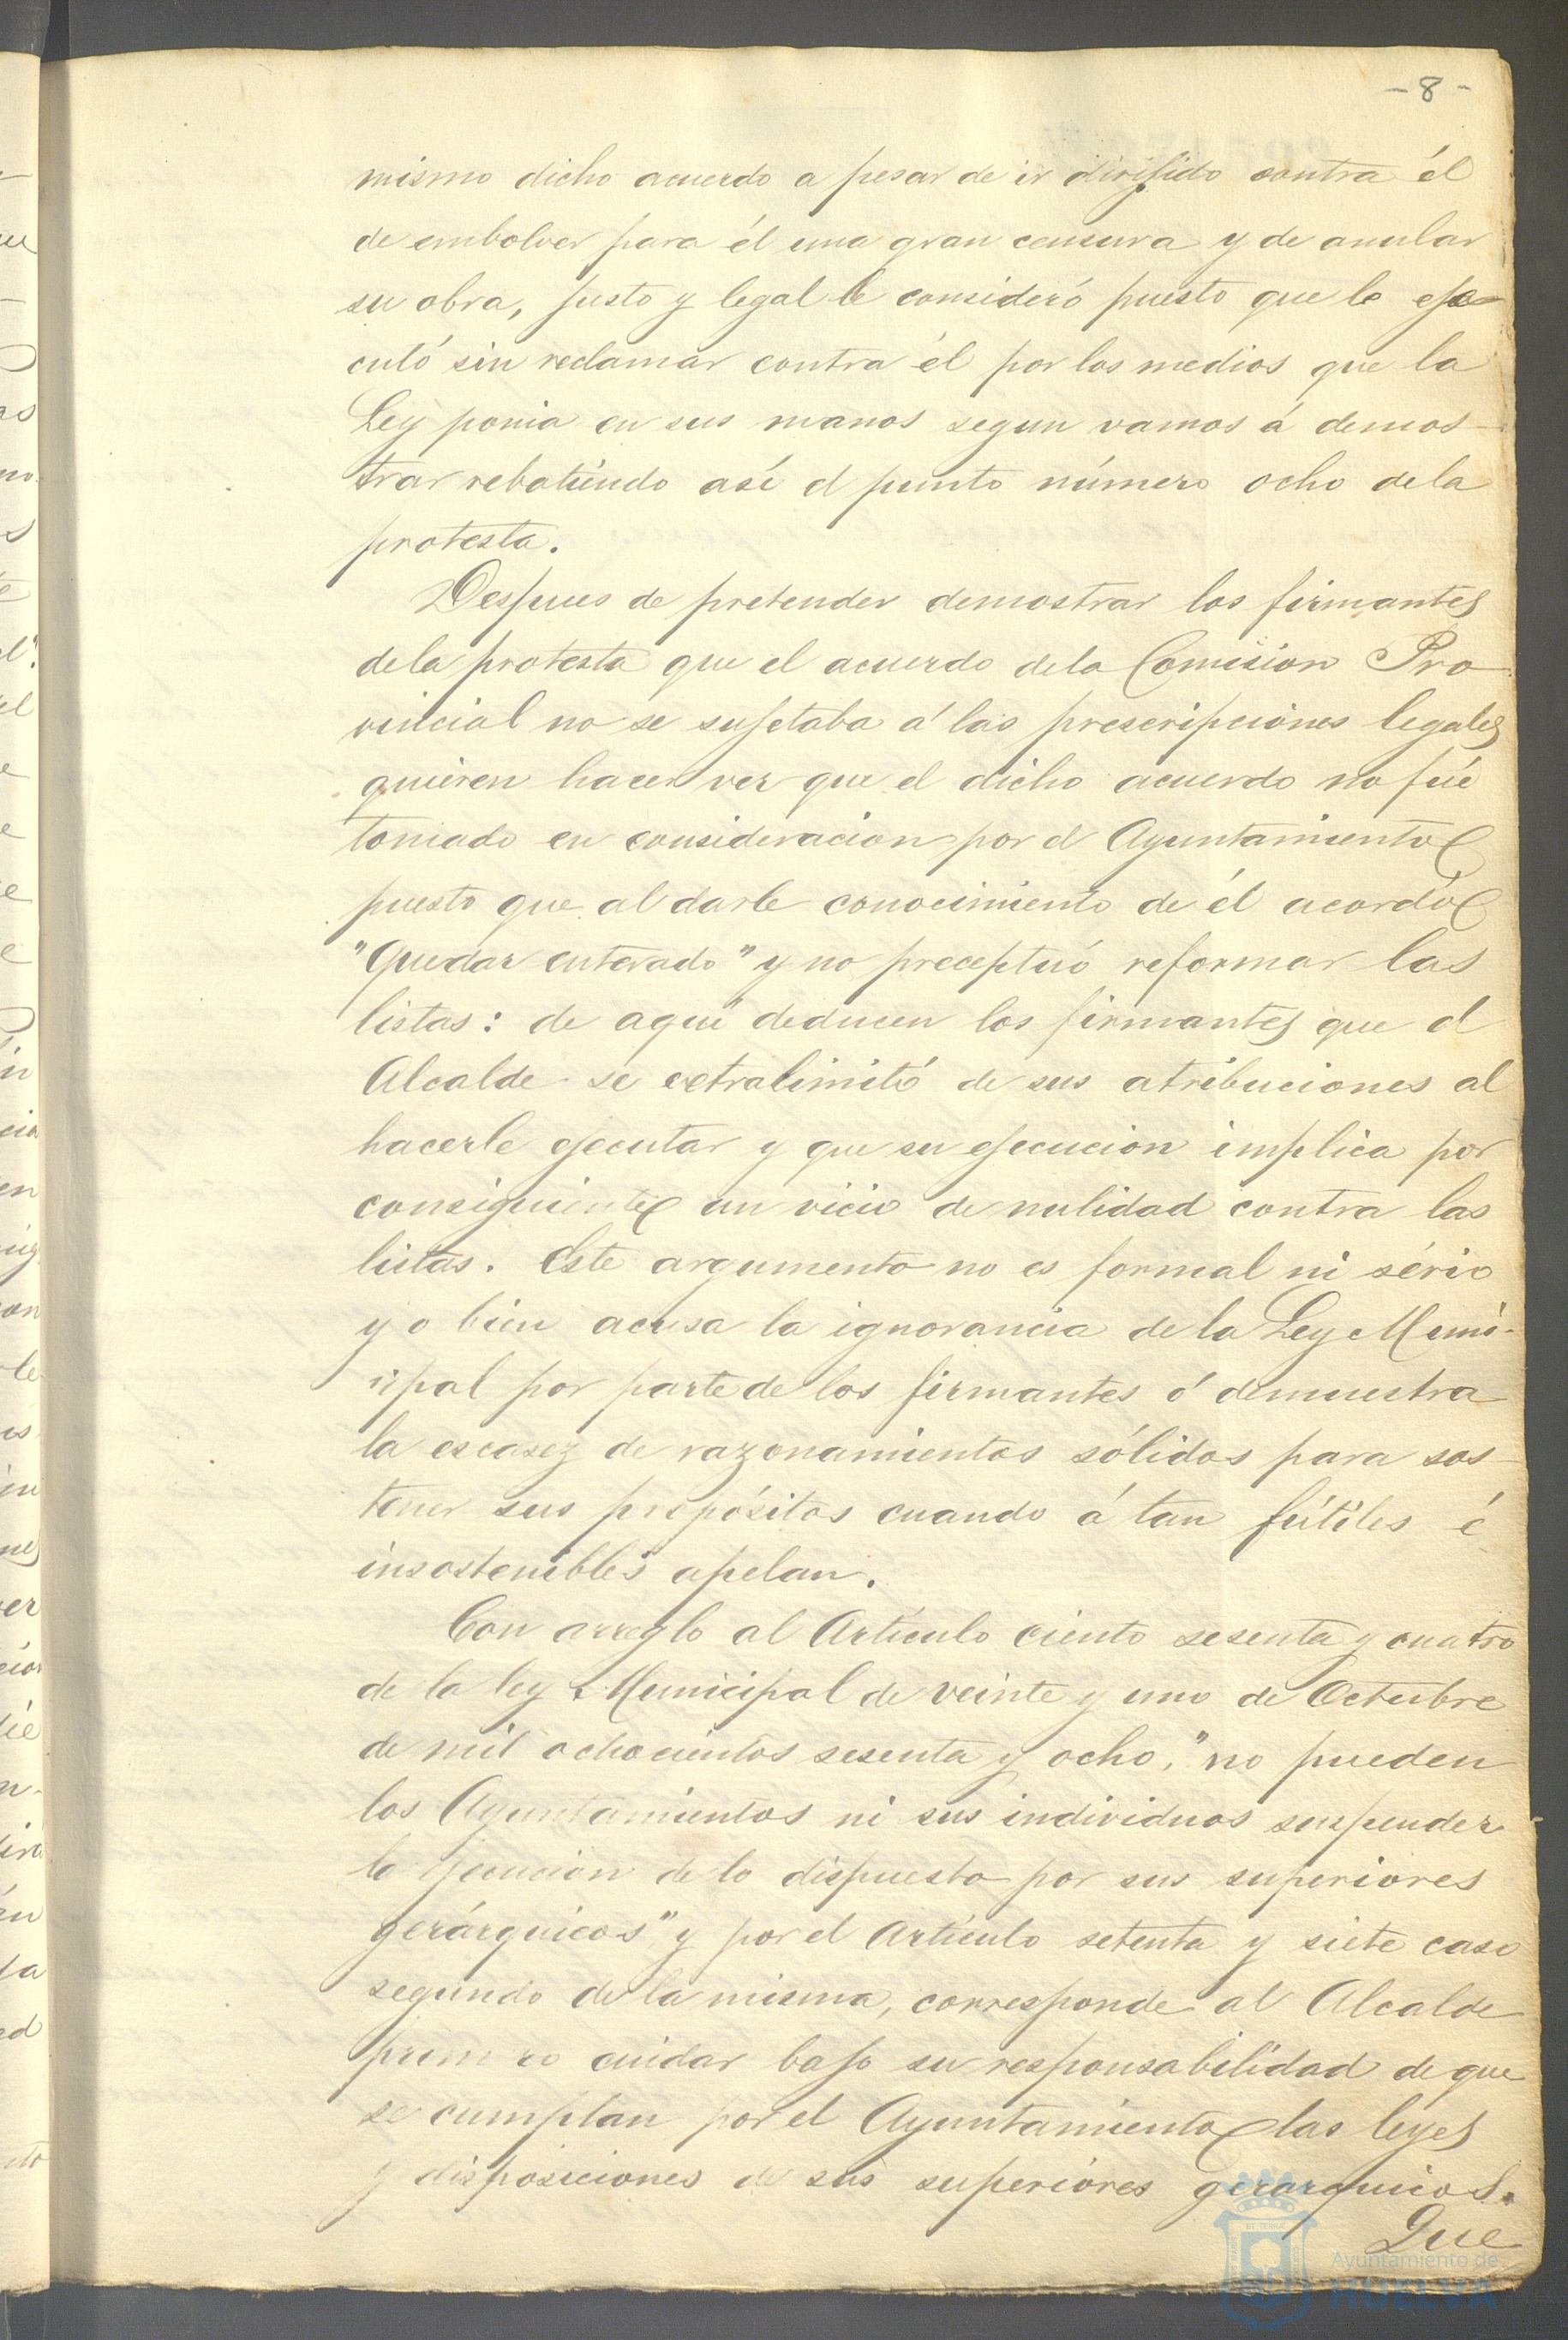 - 8 -
mismo dicho acuerdo a pesar de ir dirijido contra él
de embolver para él una gran censura y de anular
su obra, justo y legal le consideró puesto que lo eje-
cutó sin reclamar contra él por los medios que la
Ley ponia en sus manos segun vamos á demos-
trar rebatiendo así el punto número ocho de la
protesta.
Despues de pretender demostrar los firmantes
de la protesta que el acuerdo de la Comision Pro-
vincial no se sujetaba á las prescripciones legales
quieren hacer ver que el dicho acuerdo no fué
tomado en consideracion por el Ayuntamiento
puesto que al darle conocimiento de él acordó
"Quedar enterado" y no preceptuó reformar las
listas: de aqui deducen los firmantes que el
Alcalde se extralimitó de sus atribuciones al
hacerle ejecutar y que su ejecucion implica por
consiguiente un vicio de nulidad contra las
listas. Este argumento no es formal ni sério
y o bien acusa la ignorancia de la Ley Muni-
cipal por parte de los firmantes ó demuestra
la escasez de razonamientos sólidos para sos-
tener sus propósitos cuando á tan fútiles é
insostenibles apelan.
Con arreglo al Artículo ciento sesenta y cuatro
de la ley Municipal de veinte y uno de Octubre
de mil ochocientos sesenta y ocho, "no pueden
los Ayuntamientos ni sus individuos suspender
la ejecucion de lo dispuesto por sus superiores
gerárquicos" y por el Artículo setenta y siete caso
segundo de la misma, corresponde al Alcalde
primero cuidar bajo su responsabilidad de que
se cumplan por el Ayuntamiento las leyes
y disposiciones de sus superiores gerarquicos.
Que
Ayuntamiento de
HUELVA